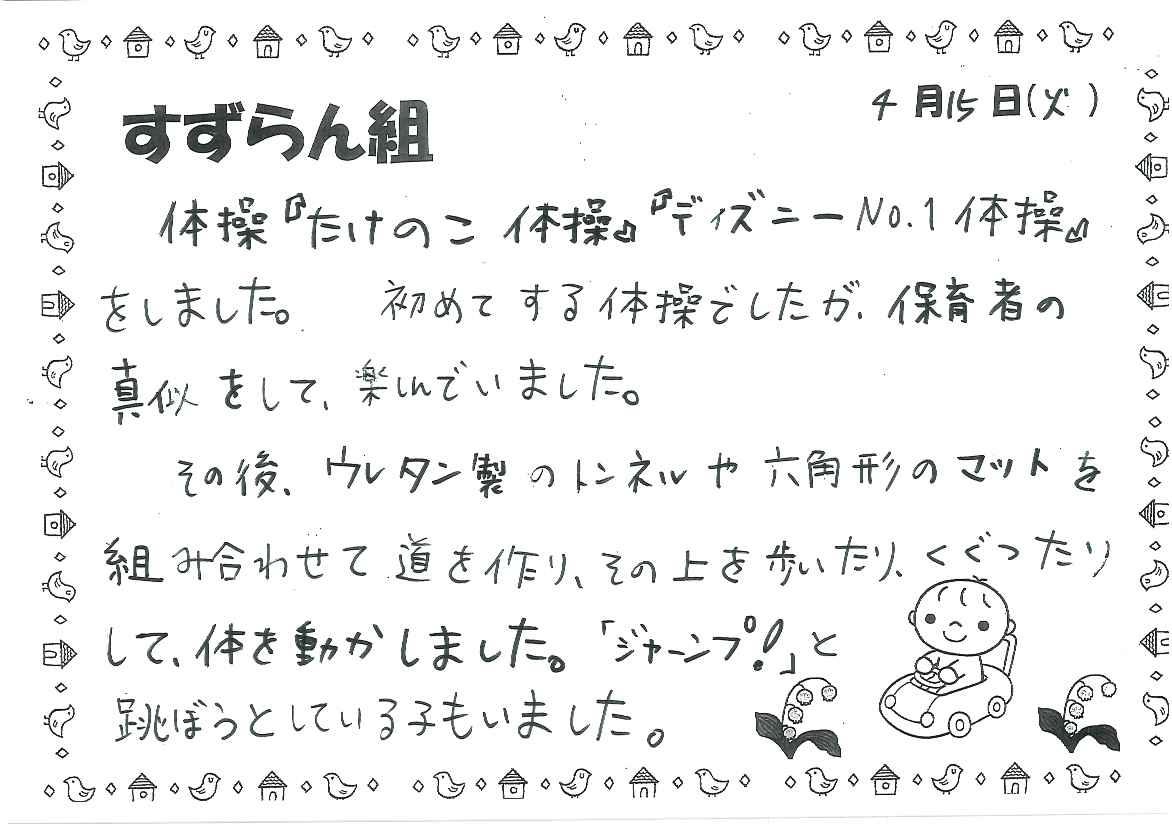 4月15日(火)
すずらん組
体操『たけのこ体操』『ディズニーNo.1体操』
をしました。 初めてする体操でしたが、保育者の
真似をして、楽しんでいました。
その後、ウレタン製のトンネルや六角形のマットを
組み合わせて道を作り、その上を歩いたり、くぐったり
して、体を動かしました。「ジャーンプ!」と
跳ぼうとしている子もいました。